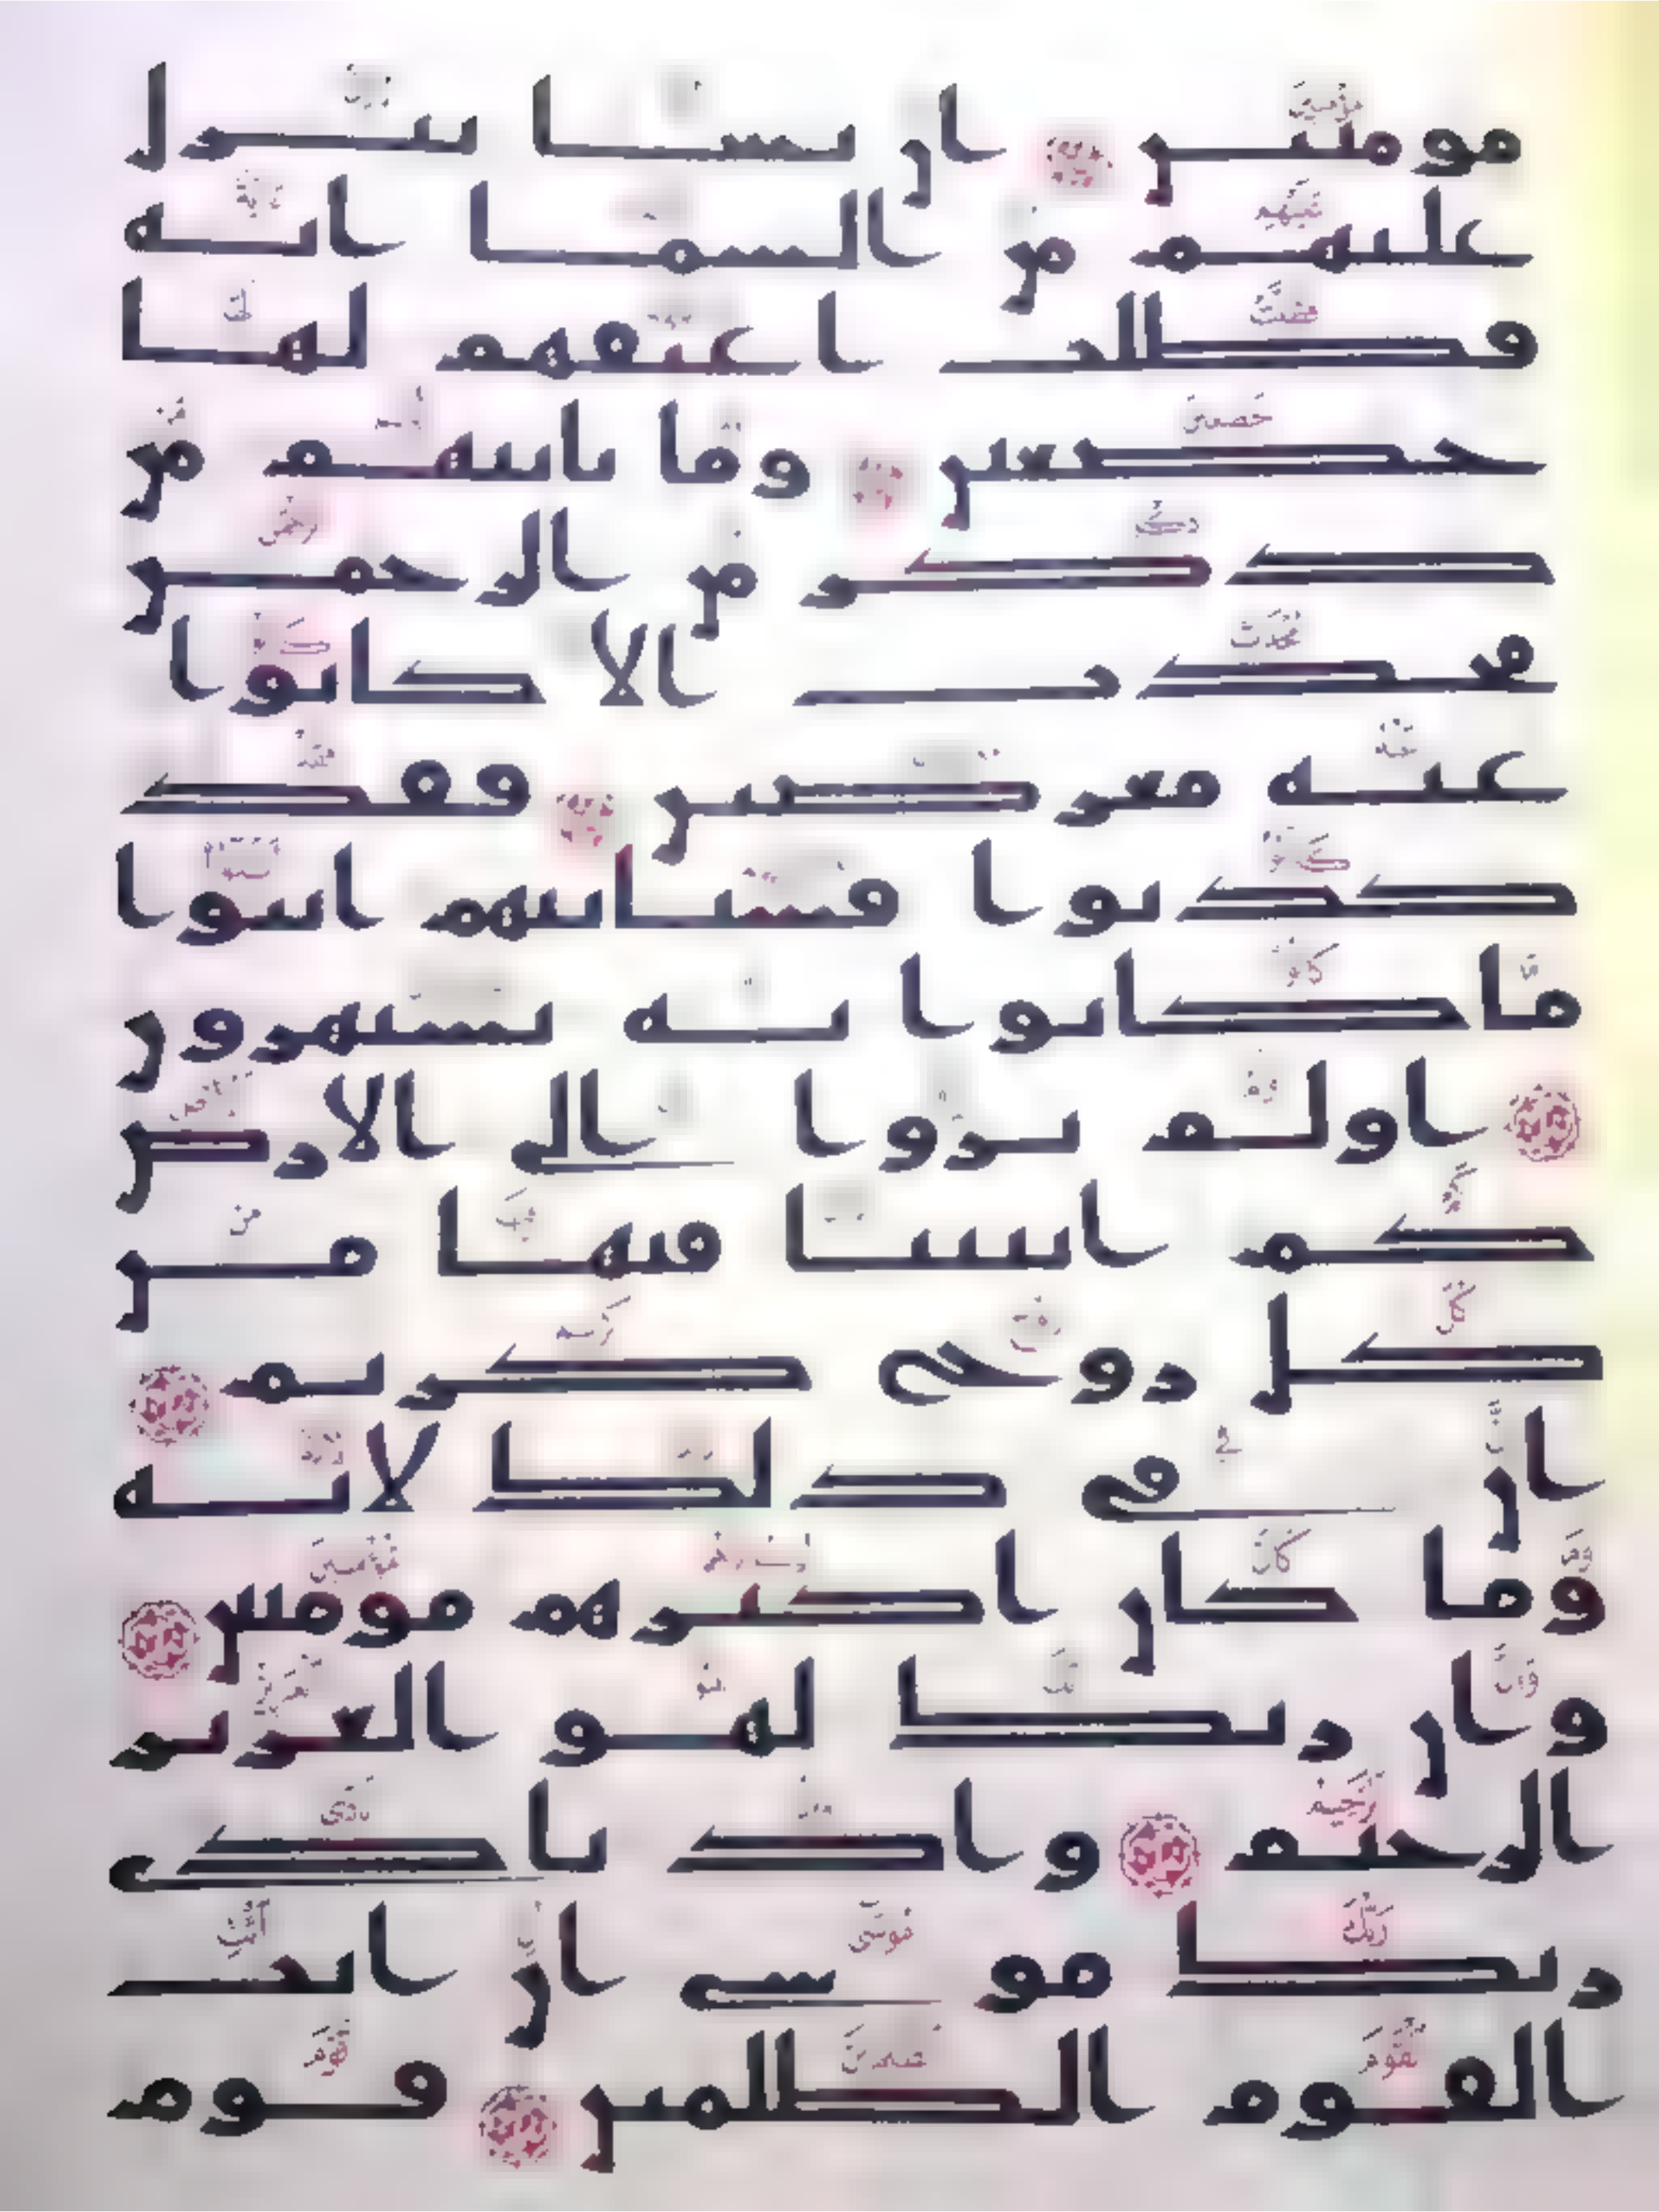 مومنين ان نشا ننزل
عليهم من السما ايه
فظلت اعنقهم لها
خضعين وما ياتيهم من
ذكر من الرحمن
محدث الا كانوا
عنه معرضين فقد
كذبوا فسياتيهم انبوا
ما كانوا به يستهزون
اولم يروا الى الارض
كم انبتنا فيها من
كل زوج كريم
ان في ذلك لايه
وما كان اكثرهم مومنين
وان ربك لهو العزيز
الرحيم واذ نادى
ربك موسى ان ايت
القوم الظلمين قوم